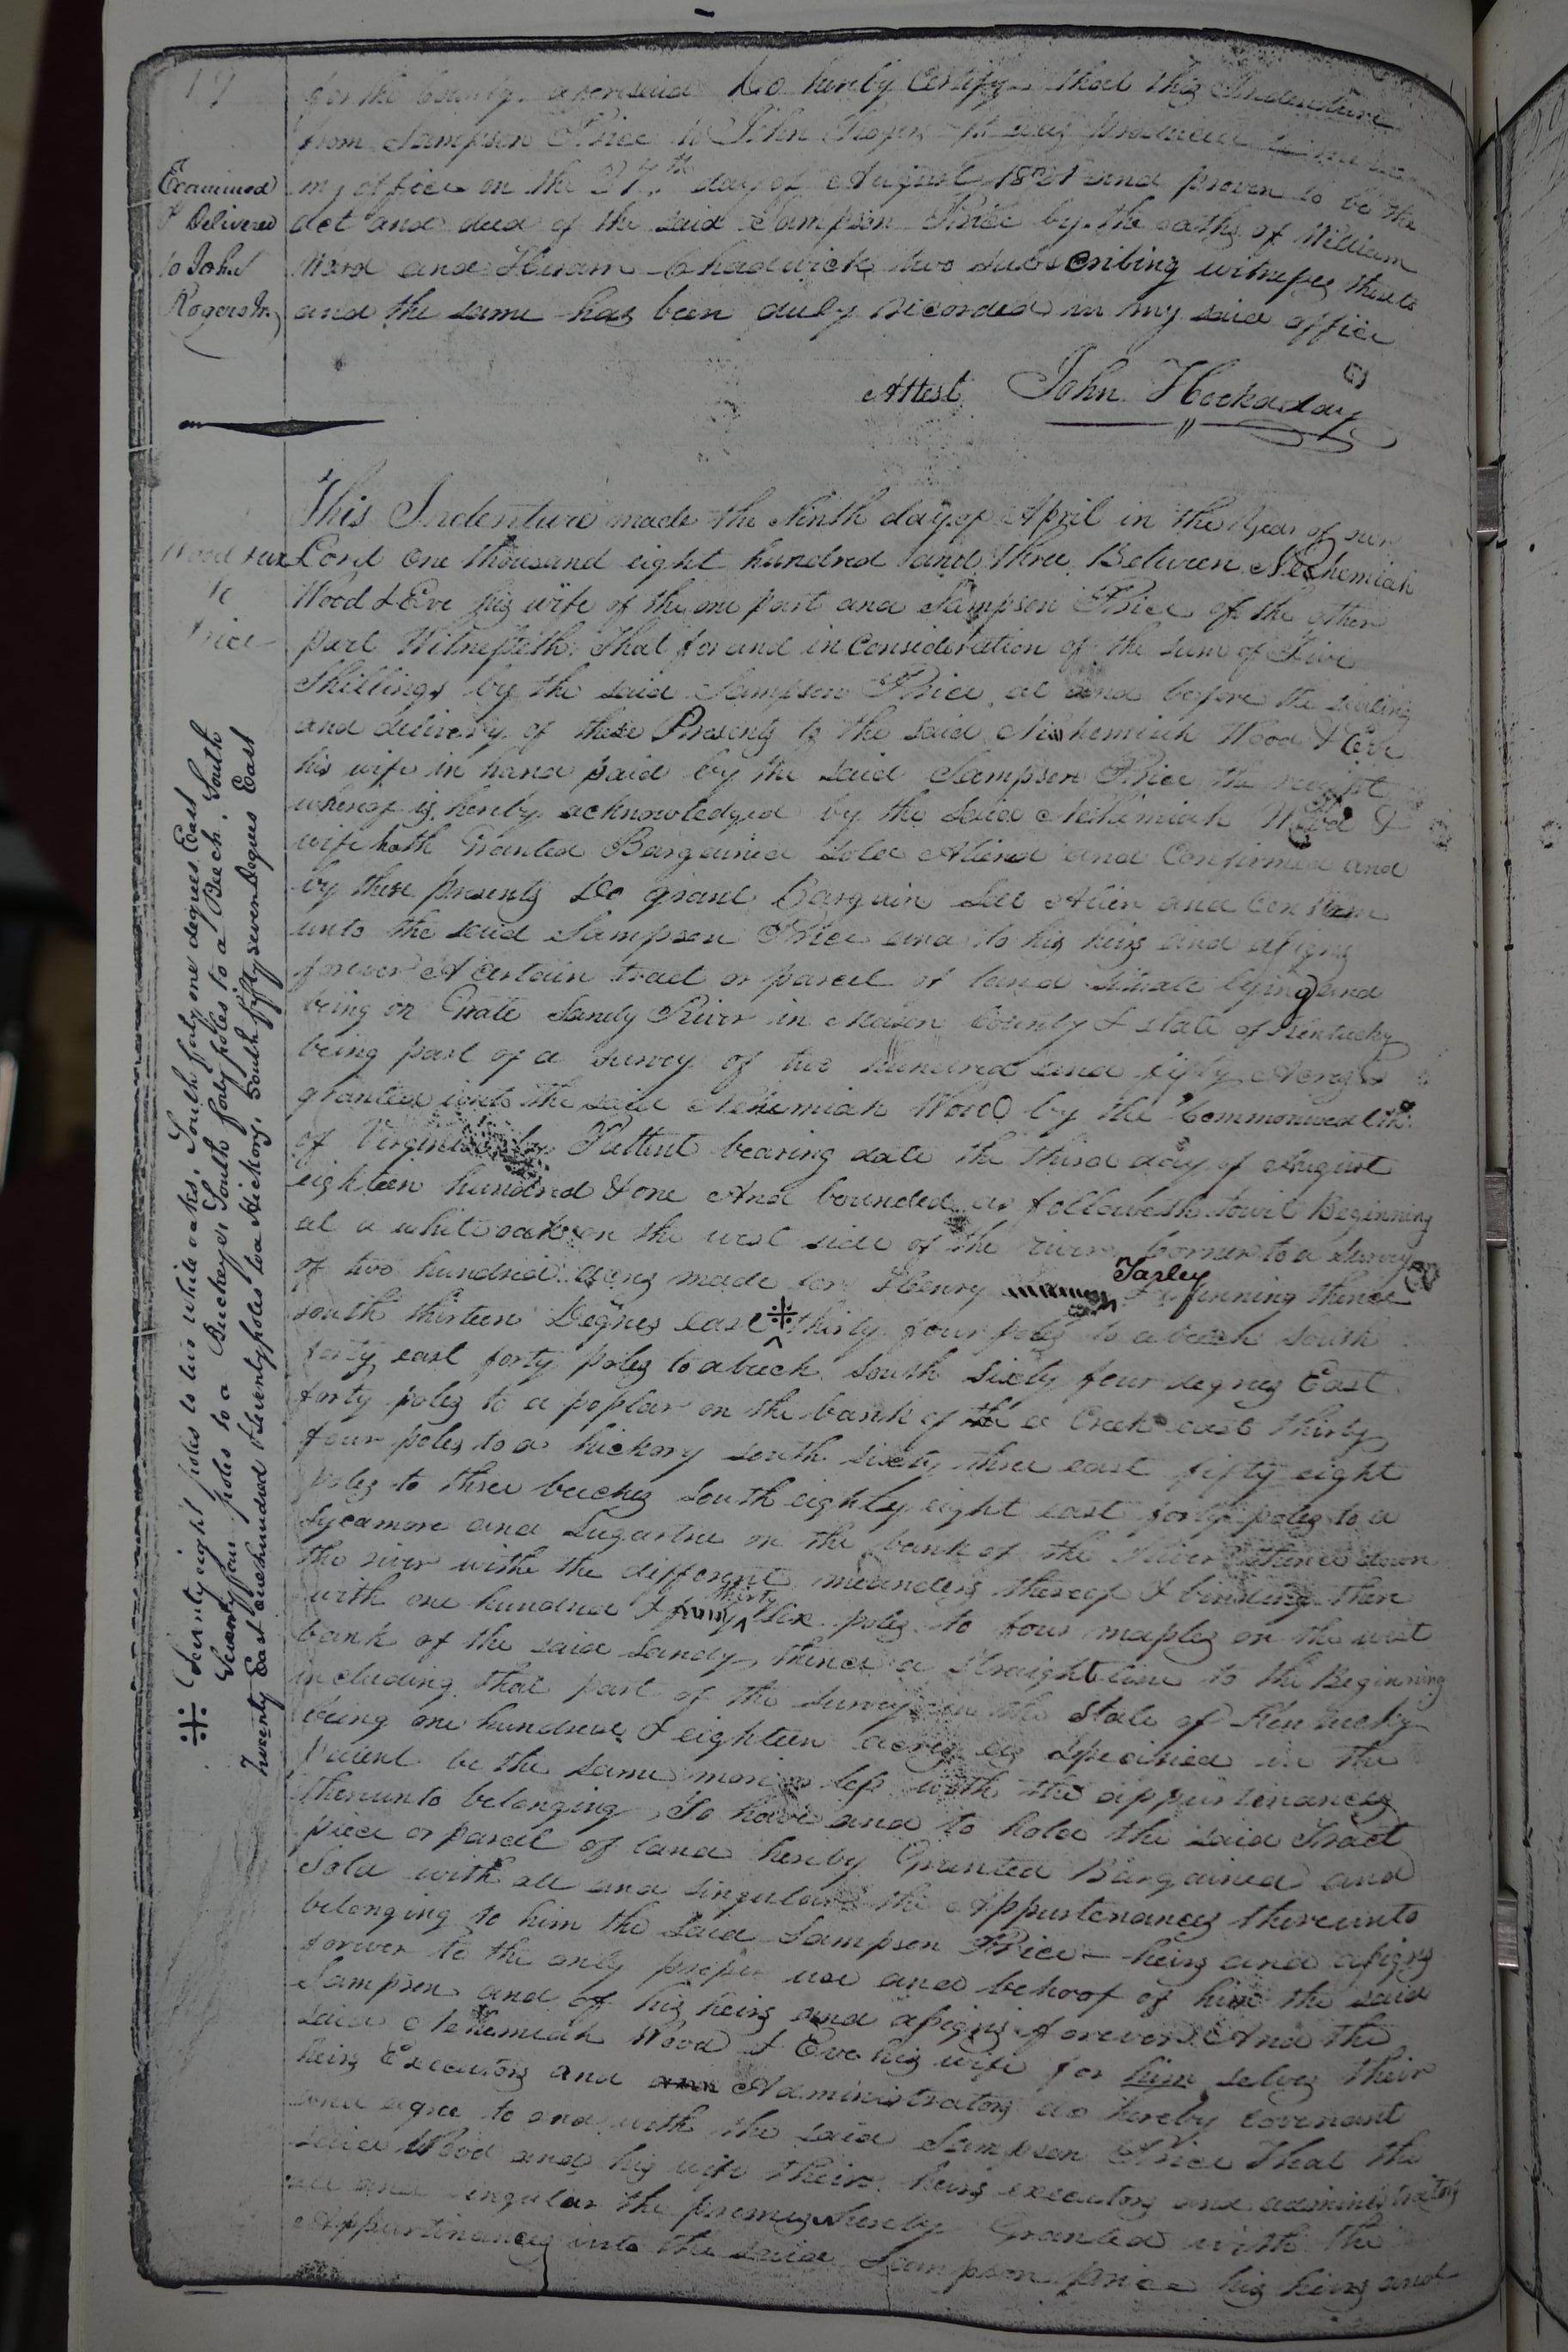 for the County aforesaid Do hereby Certify that this Indenture
from Sampson Price to John Rogers Jr was produced to me in
my office on the day of August and proven to be the
act and deed of the said Sampson Price by the oaths of William
Ward and Hiram Chadwick two subscribing witnesses thereto
and the same has been duly recorded in my said office
Attest John Hockaday
Examined
& Delivered
to John
Rogers Jr.
This Indenture made the Ninth day of April in the Year of our
Lord One thousand eight hundred and three Between Nechemiah
Wood & Eve his wife of the one part and Sampson Price of the other
part Witnesseth, That for and in Consideration of the sum of Five
Shillings by the said Sampson Price, at and before the sealing
and delivery of these Presents to the said Nehemiah Wood & Eve
his wife in hand paid by the said Sampson Price the receipt
whereof is hereby acknowledged by the said Nehemiah Wood &
wife hath Granted Bargained Sold Aliend and Confirmed and
by these presents Do grant Bargain Sell Alien and Confirm
unto the said Sampson Price and to his heirs and assigns
forever A certain tract or parcel of land situate lying and
being on Grate Sandy River in Mason County & state of Kentucky
being part of a survey of two hundred and fifty Acres
granted unto the said Nehemiah Wood by the Commonwealth
of Virginia by Pattent bearing date the third day of August
eighteen hundred & one And bounded as followeth towit Beginning
at a whiteoak on the west side of the river Corner to a survey
of two hundred acres made for Henry Farley Running thence
south thirteen Degrees east ※ thirty four poles to a beech south
forty east forty poles to a beech south sixty four degrees East
forty poles to a poplar on the bank of the a Creek east thirty
four poles to a hickory south sixty three east fifty eight
poles to three beeches South eighty eight east forty poles to a
Sycamore and Sugartree on the bank of the River thence down
the river withe the different meanders thereof & binding there
with one hundred & thirty six poles to four maples on the west
bank of the said Sandy, thence a straight line to the Beginning
including that part of the survey in the State of Kentucky
being one hundred & eighteen acres as specified in the
Patent be the same more or less with the appurtenances
thereunto belonging, To have and to hold the said Tract
piece or parcel of land hereby Granted Bargained and
Sold with all and singular the Appurtenances thereunto
belonging to him the said Sampson Price heirs and assigns
forever to the only proper use and behoof of him the said
Sampson and of his heirs and assigns forever And the
said Nehemiah Wood & Eve his wife for him selves their
heirs Executors and and Administrators do hereby covenant
and agree to and with the said Sampson Price That the
said Wood and his wife their heirs executors and administrators
all and singular the premises hereby Granted with the
Appurtinances unto the said Sampson price his heirs and
Wood &ux
to
Price
※ Seventy eight poles to two white oaks, South forty one degrees East
Seventy four poles to a Buckeye, South forty poles to a Beech, South
Twenty East one hundred & twenty poles to a Hickory, South fifty seven Degrees East